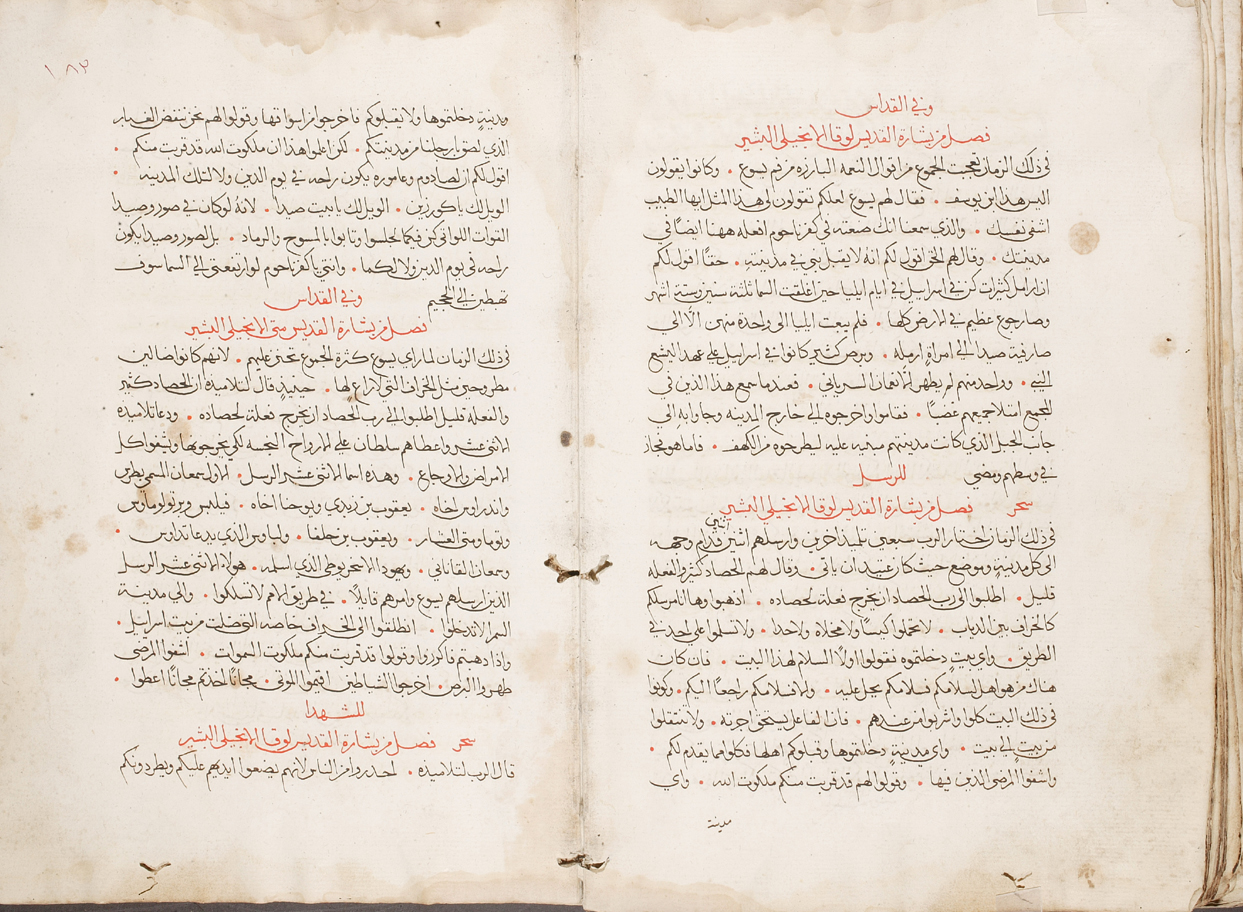 وفي القداس
فصل من بشارة القديس لوقا الانجيلي البشير
في ذلك الزمان تعجبت الجموع من اقوال النعمه البارزه من فم يسوع • وكانوا يقولون
اليس هذا ابن يوسف • فقال لهم يسوع لعلكم تقولون لي هذا المثل ايها الطبيب
اشفي نفسك • والذي سمعنا انك صنعته في كفرناحوم افعله ههنا ايضًا في
مدينتك • وقال لهم الحق اقول لكم انه لا يقبل نبي في مدينته • حقًا اقول لكم
ان ارامل كثيرات كن في اسراييل في ايام ايليا حين اغلقت السما ثلثة سنين وستة اشهر
وصار جوع عظيم في الارض كلها • فلم يبعت ايليا الى واحدة منهن الا الي
صارفية صيدا الي امراةٍ ارمله • وبرص كثير كانوا في اسراييل علي عهد اليشع
النبي • وواحد منهم لم يطهر الا نعمان السرياني • فعندما سمع هذا الذين في
المجمع امتلا جميعهم غضبًا • فقاموا واخرجوه الي خارج المدينه وجاوا به الي
جانب الجبل الذي كانت مدينتهم مبنيه عليه ليطرحوه من الكهف • فاما هو فجاز
في وسطهم ومضي للرسل
سحر فصل من بشارة القديس لوقا الانجيلي البشير
في ذلك الزمان اختار الرب سبعين تلميذ اخرين وارسلهم اثنين اثنين قدام وجهه
الي كل مدينةٍ وموضع حيث كان عتيد ان ياتي • وقال لهم الحصاد كثير والفعله
قليل • اطلبوا الى رب الحصاد ان يخرج فعلة لحصاده • اذهبوا وها انا مرسلكم
كالخراف بين الدياب • لا تحملوا كيسًا ولا مخلاه ولا حدا • ولا تسلموا علي احد في
الطريق • واي بيتٍ دخلتموه فقولوا اولًا السلام لهذا البيت • فان كان
هناك من هو اهل لسلامكم فسلامكم يحل عليه • والا فسلامكم راجعًا اليكم • وكونوا
في ذلك البيت كلوا واشربوا من عندهم • فان الفاعل يستحق اجرته • ولا تنتقلوا
من بيتٍ الي بيت • واي مدينةٍ دخلتموها وقبلوكم اهلها فكلوا مما يقدم لكم •
واشفوا المرضي الذين فيها • وقولوا لهم قد قربت منكم ملكوت الله • واي
مدينة
١٨٣
مدينةٍ دخلتموها ولا يقبلوكم فاخرجوا من اسواقها وقولوا لهم نحن ننفض الغبار
الذي لصق بارجلنا من مدينتكم • لكن اعلموا هذا ان ملكوت الله قد قربت منكم •
اقول لكم ان لصادوم وعاموره يكون راحه في يوم الدين ولا لتلك المدينه •
الويل لك ياكورزين • الويل لك يا بيت صيدا • لانه لو كان في صور وصيدا
القوات اللواتي كن فيكما لجلسوا وتابوا بالمسوح والرماد • بل لصور وصيدا يكون
راحه في يوم الدين ولا لكما • وانتي يا كفرناحوم لو ارتفعتي الي السما سوف
تهبطين الي الجحيم وفي القداس
فصل من بشارة القديس متى الانجيلي البشير
في ذلك الزمان لما راي يسوع كثرة الجموع تحنن عليهم • لانهم كانوا ضالين
مطروحين مثل الخراف التي لا راعٍ لها • حينيذٍ قال لتلاميذه ان الحصاد كثير
والفعله قليل اطلبوا الي رب الحصاد ان يخرج فعلة لحصاده • ودعا تلاميذه
الاثني عشر واعطاهم سلطان علي الارواح النجسه لكي يخرجوها ويشفوا كل
الامراض والاوجاع • وهذه اسما الاثني عشر الرسل • الاول سمعان المسمي بطرس
واندراوس اخاه • يعقوب بن زبدي ويوحنا اخاه • فيلبس وبرتولوماوس
وتوما ومتي العشار • ويعقوب بن حلفا • ولباوس الذي يدعا تداوس •
وسمعان القاناني • ويهودا الاسخريوطي الذي اسلمه • هولا الاثني عشر الرسل
الذين ارسلهم يسوع وامرهم قايلًا • في طريق الامم لا تسلكوا • والي مدينة
السمرا لا تدخلوا • انطلقوا الي الخراف خاصه التي ضلت من بيت اسراييل •
واذا دهبتم فاكرزوا وقولوا قد قربت منكم ملكوت السموات • اشفوا المرضى
طهروا البرص • اخرجوا الشياطين اقيموا الموتي • مجانًا اخذتم مجانًا اعطوا •
للشهدا
سحر فصل من بشارة القديس لوقا الانجيلي البشير
قال الرب لتلاميذه • احدروا من الناس لانهم يضعوا ايديهم عليكم ويطردونكم